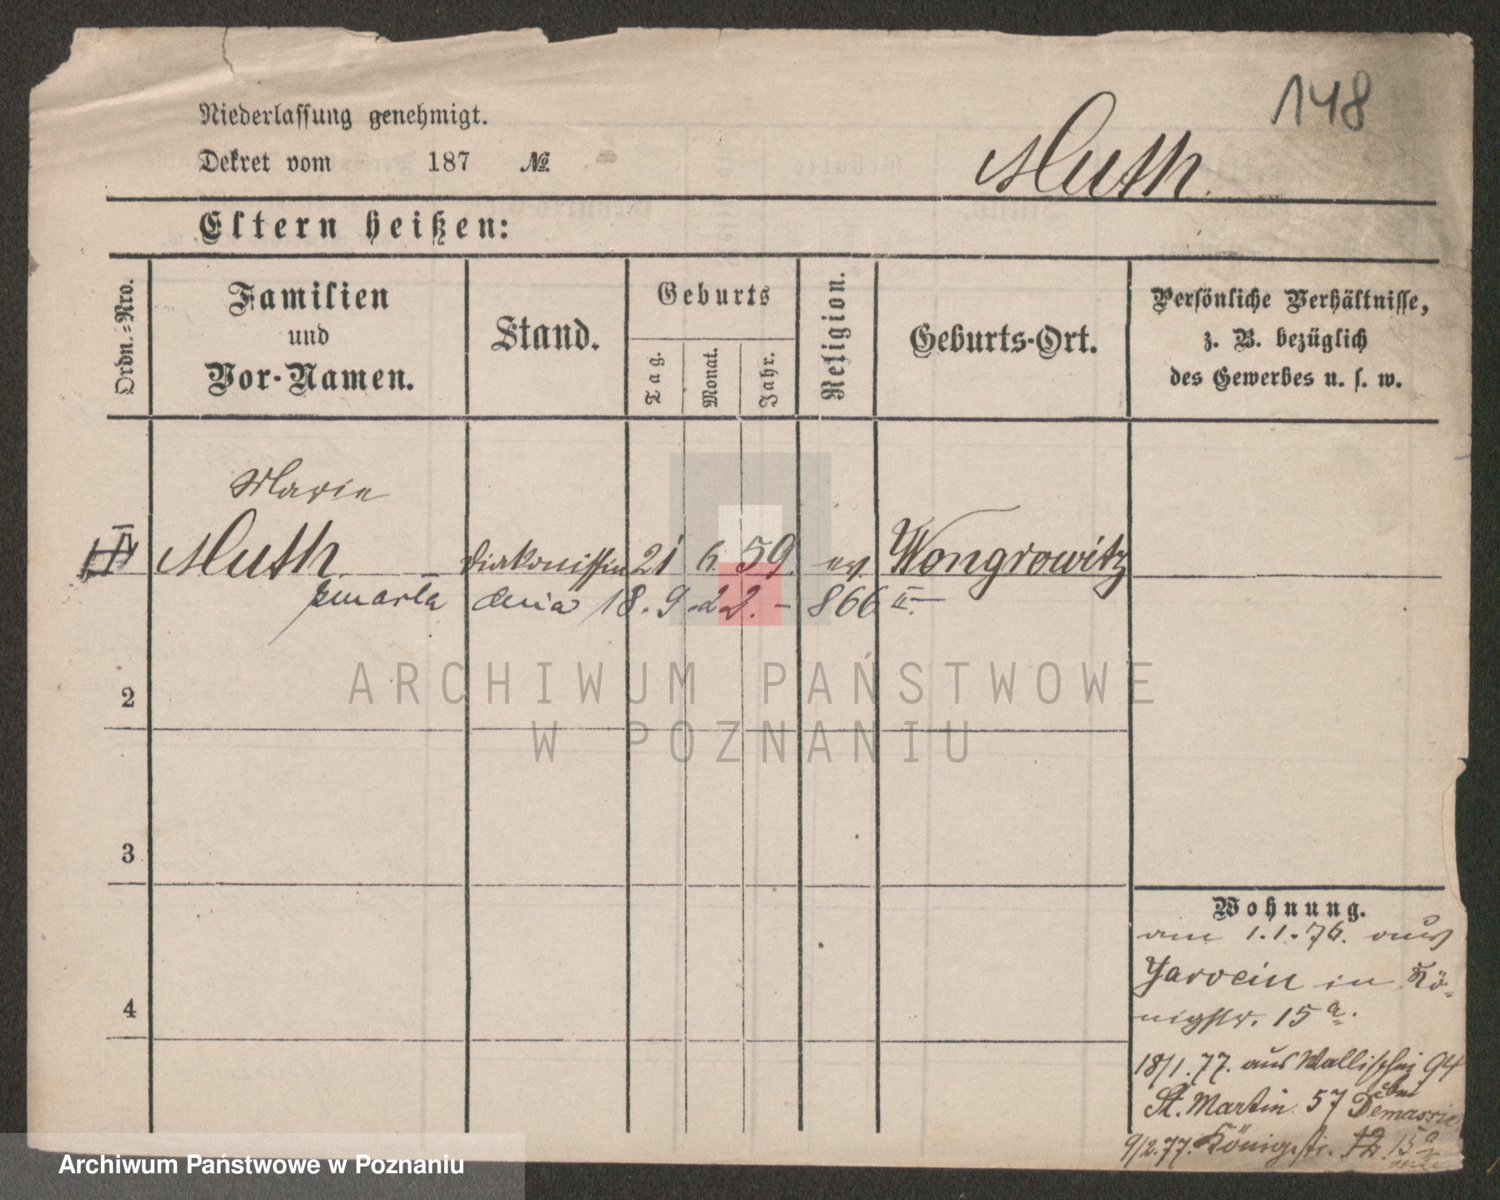 148
Niederlassung genehmigt.
Dekret vom 187 №
Muth.
Eltern heißen:
Ordn.-Nro.
Familien
und
Vor-Namen.
Stand.
Geburts
Tag.
Monat.
Jahr.
Religion.
Geburts-Ort.
Persönliche Verhältnisse,
z. B. bezüglich
des Gewerbes u. s. w.
Marie
Muth Diakonissin 21 6. 59. ev. Wongrowitz
zmarła dnia 18. 9. 22. - 866 II.
2
3
4
Wohnung.
am 1.1.76. aus
in Kö-
nigstr. 15 a.
18/1.77. aus Wallischei 94
St. Martin 57 bei
9/2.77. Königstr. 15 a
ARCHIWUM PAŃSTWOWE
W POZNANIU
Archiwum Państwowe w Poznaniu